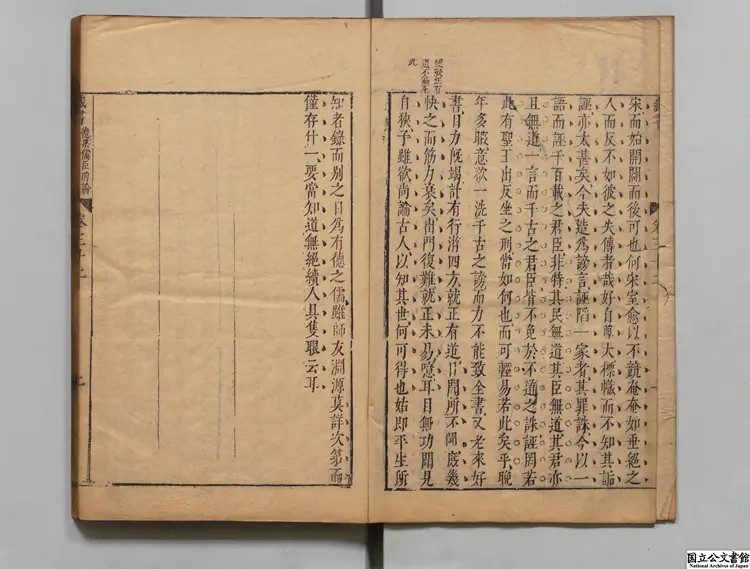 便説正有
道不無至
此
宋而始開闢而後可也何宋室愈以不競奄奄如垂絶之
人而反不如彼之失傳者哉好自尊大標幟而不知其詬
誣亦太甚矣今夫造爲謗言誣陷一家者其罪誅今以一
語而誣千百載之君臣非特其民無道其臣無道其君亦
且無道一言而千古之君臣皆不免於不道之誅誣罔若
此有聖王出反坐之刑當如何也而可輕易若此矣乎晩
年多暇意欲一洗千古之謗而力不能致全書又老來好
書目力旣竭計有行游四方就正有道日聞所不聞庻幾
快之而筋力衰矣出門復難就正未易噫耳目無功聞見
自狹予雖欲尚論古人以知其世何可得也姑即平生所
知者錄而别之目爲有德之儒雖師友淵源莫詳次第而
僅存什一要當知道無絶續人具隻眼云耳
藏書 德業儒臣前論 卷三十二
國立公文書館
National Archives of Japan